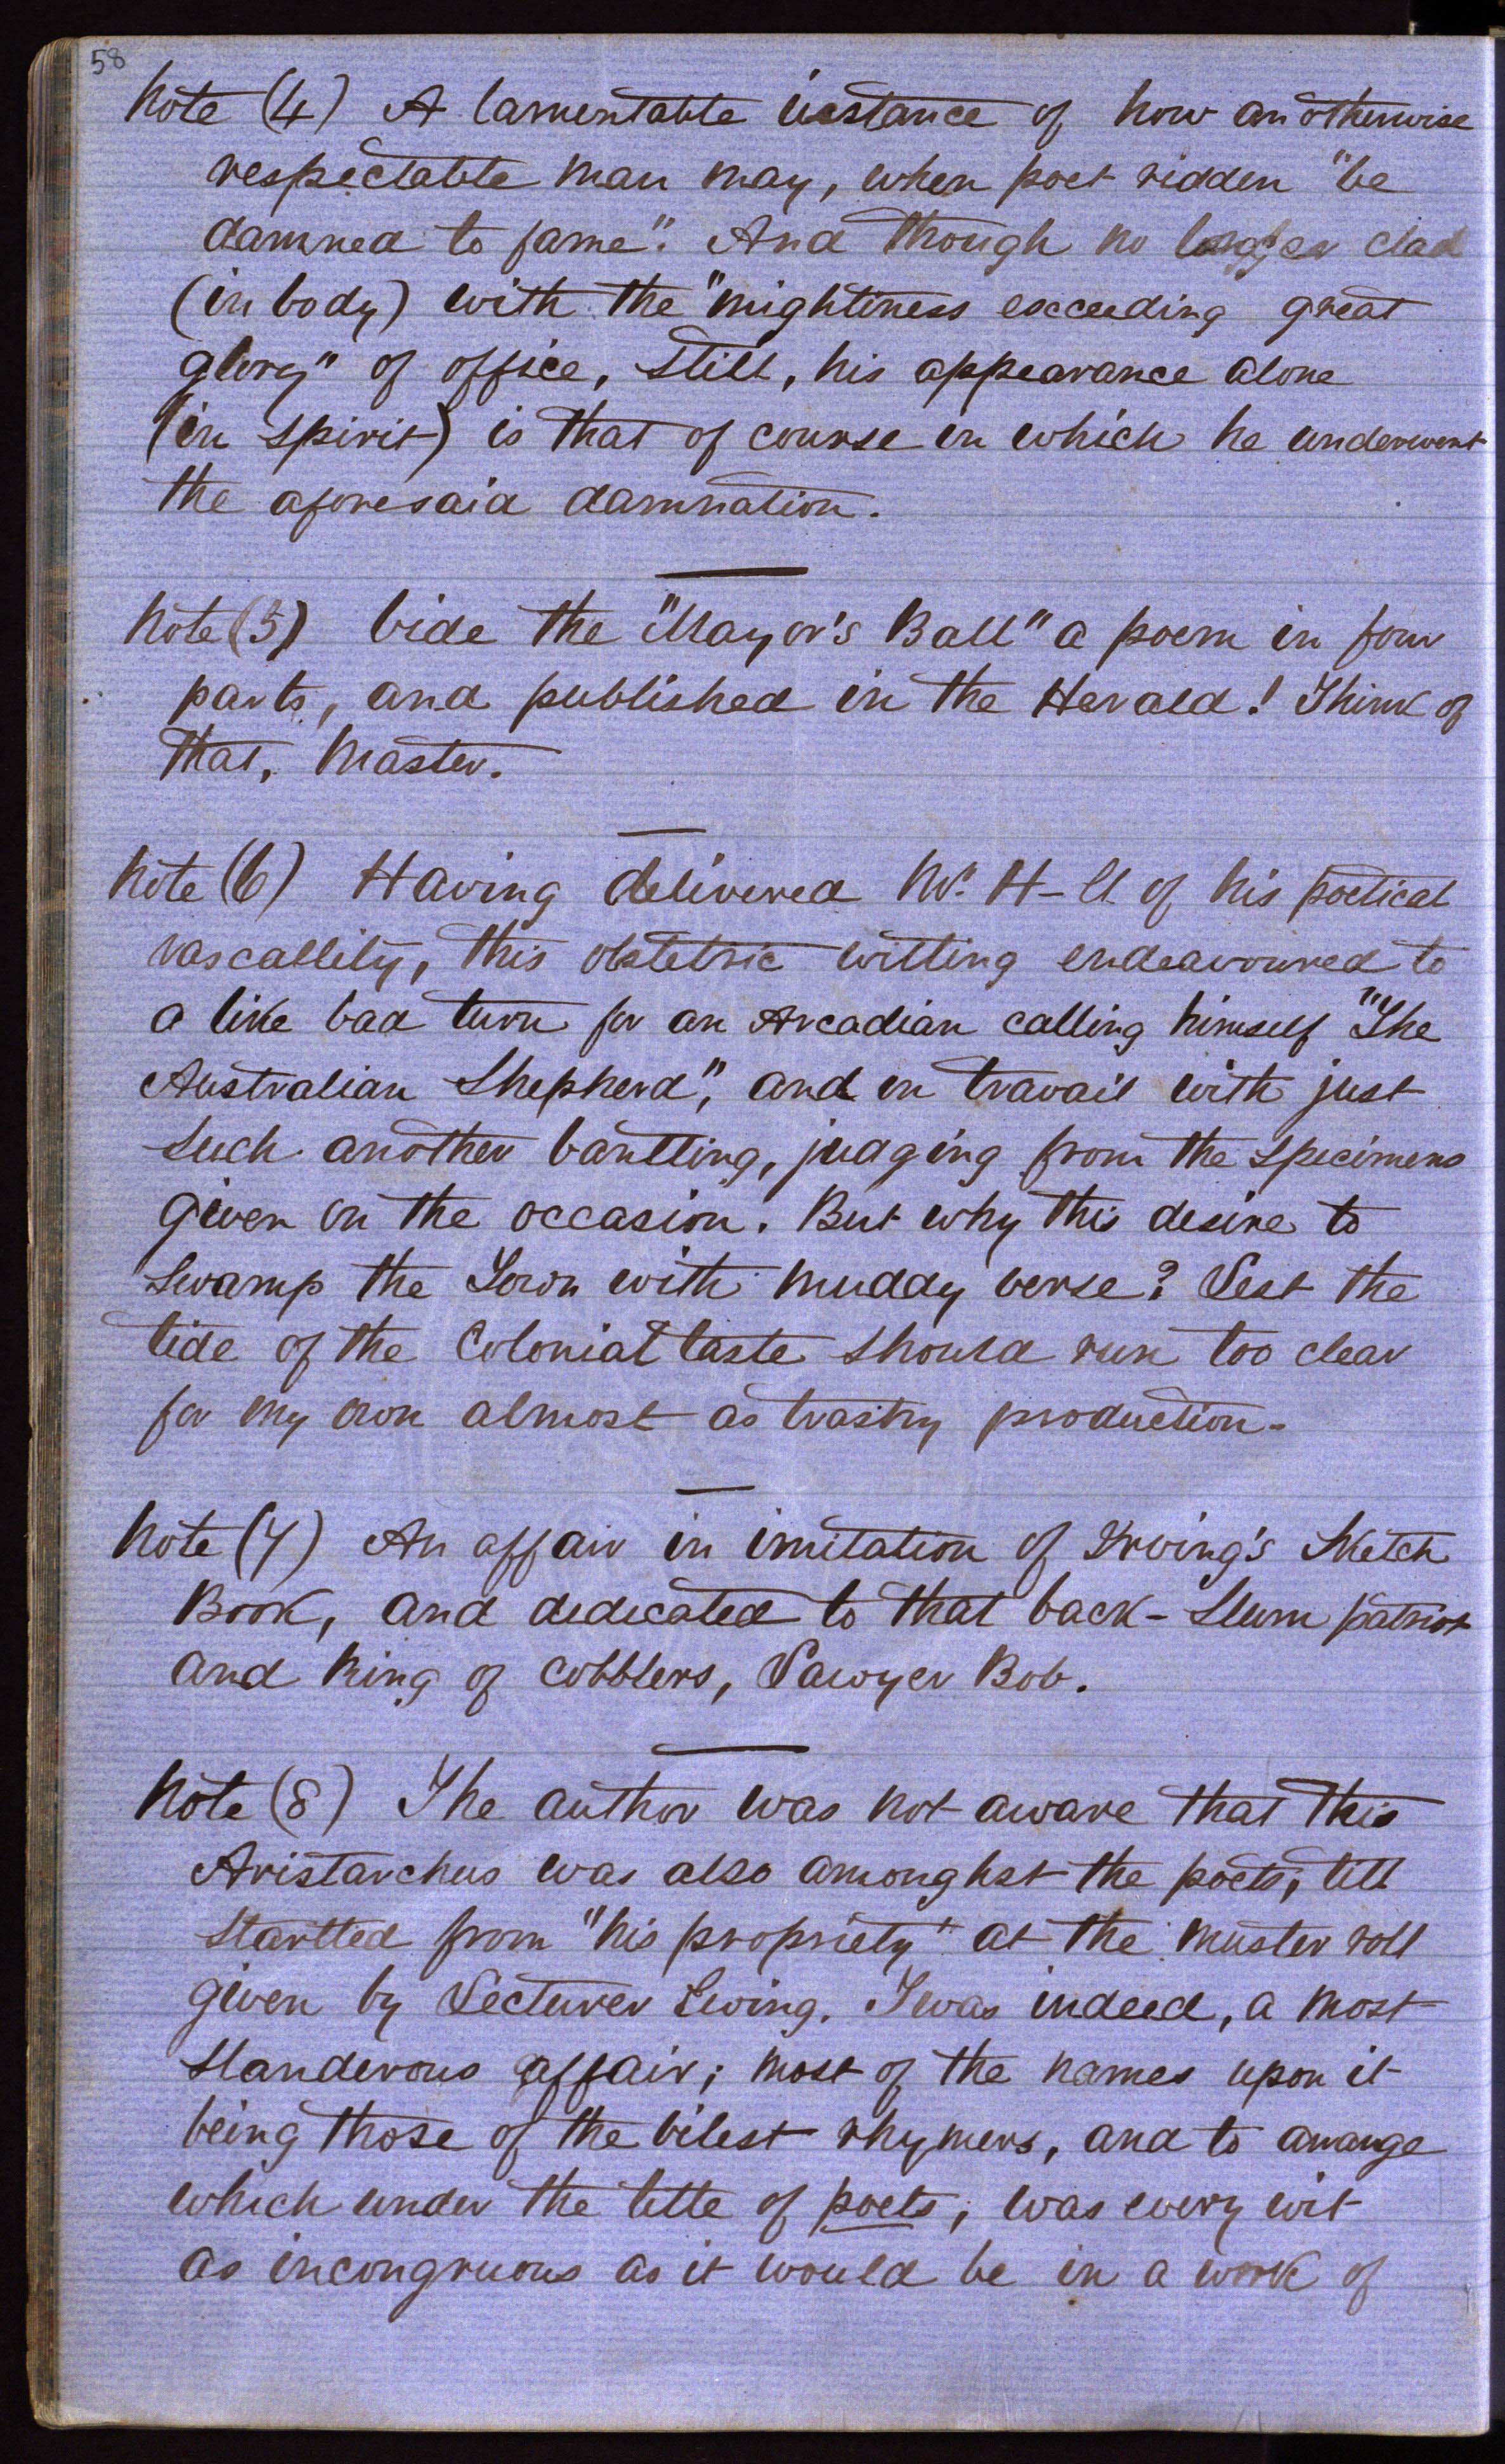 58
Note (4) A lamentable instance of how an otherwise
respectable man may, when poet ridden "be
damned to fame". And though no longer clad
(in body) with the "mightiness exceeding great
glory" of office, still, his appearance alone
(in spirit) is that of course in which he underwent
the aforesaid damnation.
Note (5) Vide the "Mayor's Ball" a poem in four
parts, and published in the Herald! Think of
that, Master.
Note (6) Having delivered Mr. H-ll of his poetical
rascallity, this obstetric witling endeavoured to
a like bad turn for an Arcadian calling himself "The
Australian Shepherd", and in travail with just
such another bantling, judging from the specimens
given on the occasion. But why this desire to
swamp the Town with muddy verse? Lest the
tide of the Colonial taste should run too clear
for my own almost as trashy production.
Note (7) An affair in imitation of Irving's Sketch
Book, and dedicated to that back-slum patriot
and King of Cobblers, Lawyer Bob.
Note (8) The author was not aware that this
Aristarchus was also amonghst the poets, till
startled from "his propriety" at the muster roll
given by Lecturer Ewing. Twas indeed, a most
slanderous affair; most of the names upon it
being those of the vilest rhymers, and to arrange
which under the title of poets, was every wit
as incongruous as it would be in a work of